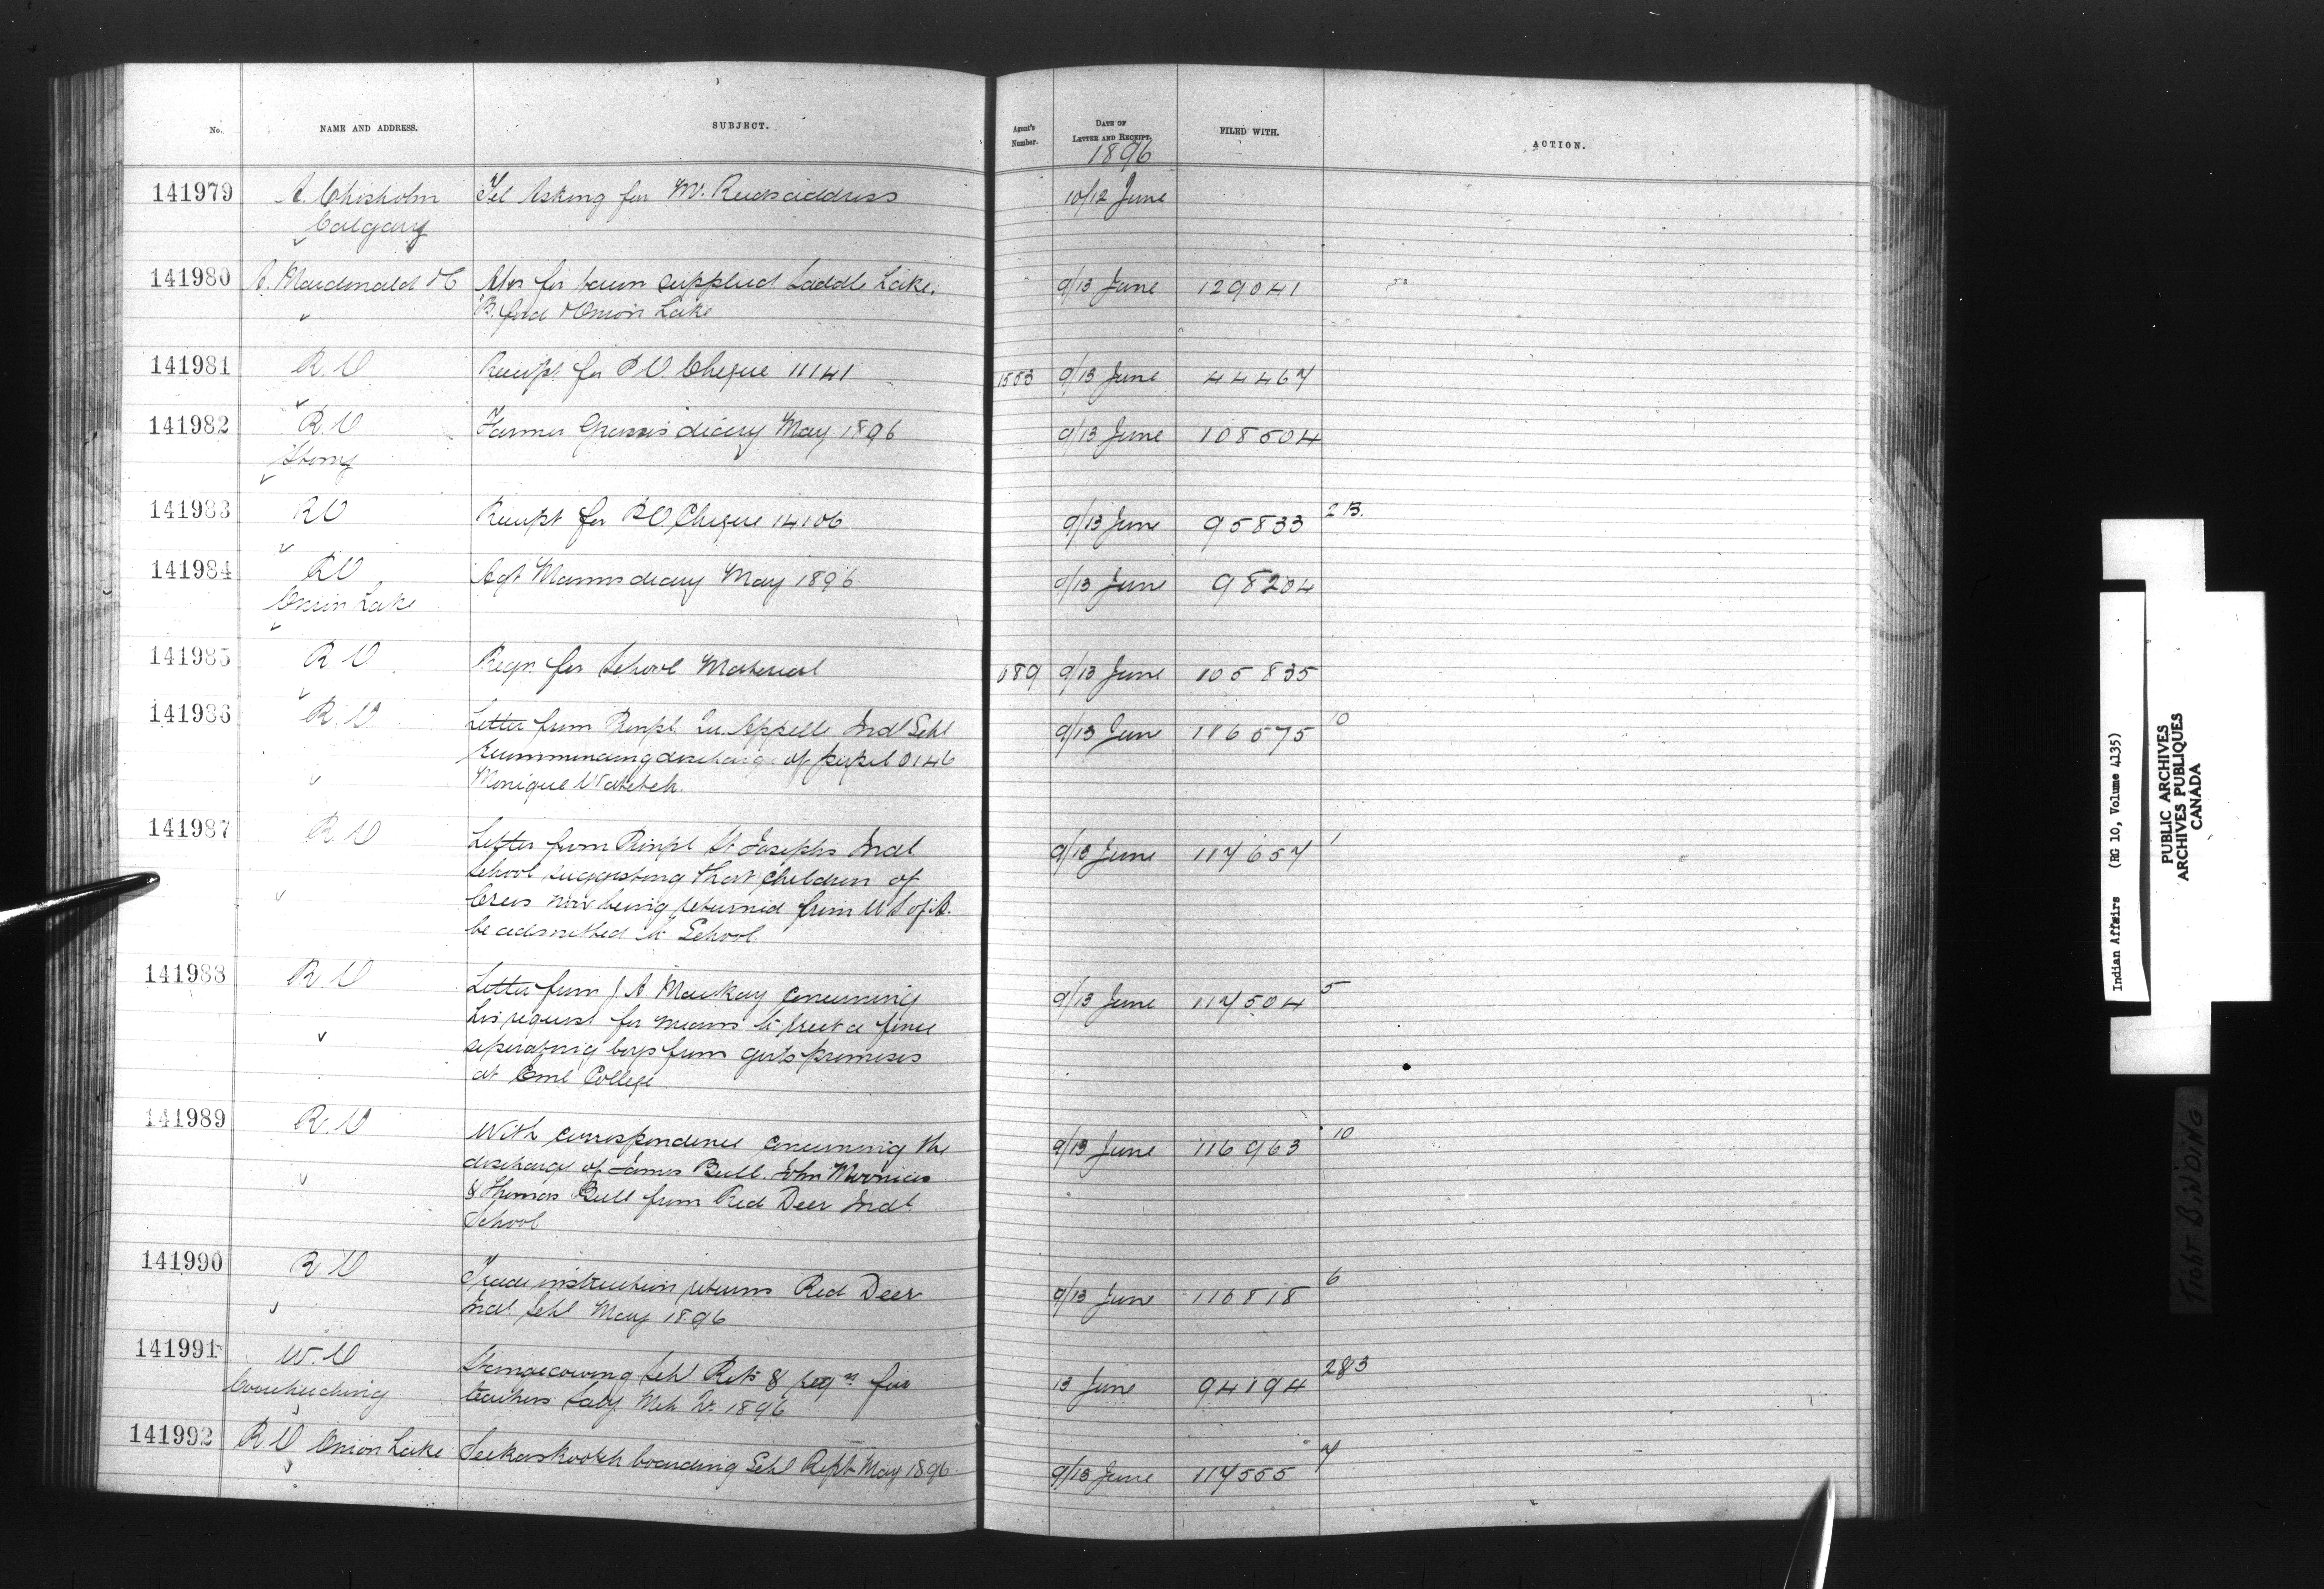 No. NAME AND ADDRESS. SUBJECT. Agent's Number. DATE OF LETTER AND RECEIPT. FILED WITH. ACTION.
1896
141979 A. Chisholm Tel Asking for Mr. Reeds address 10/12 June
Calgary
141980 A. Macdonald &C for bacon supplied Saddle Lake, 9/13 June 129041
B. ford & Onion Lake
141981 R.O Receipt for P.O. Cheque 11141 1553 9/13 June 44467
141982 R.O Farmer diary May 1896 9/13 June 108504
Stony
141983 R.O Receipt for P.O. Cheque 14106 9/13 June 95833 2 B.
141984 R.O Agt Manns diary May 1896 9/13 June 98204
Onion Lake
141985 R.O Reqn. for School Material 689 9/13 June 105835
141986 R.O. Letter from Prinpl. Qu. Appelle Indl Schl 9/13 June 116575 10
recommending discharge of pupil 0146
Monique
141987 R.O Letter from Prinpl St Josephs Indl 9/13 June 117657 1
School suggesting that children of
Crees now being returned from U S of A.
be admitted to School.
141988 R.O Letter from J. A Mackay concerning 9/13 June 117504 5
his request for means to erect a fence
separating boys from girls premises
at Eml College
141989 R.O With correspondence concerning the 9/13 June 116963 10
discharge of James Bull, John
& Thomas Bull from Red Deer Indl
School
141990 R.O Trade instruction returns Red Deer 9/13 June 116818 6
Indl. Schl May 1896
141991 W.O Stangecoming Schl Rets & reqn for 13 June 94194 283
Coucheiching teachers Saly Mch Qr. 1896
141992 R.O Onion Lake Seekaskootch boarding Schl Rept May 1896 9/13 June 117555 7
Indian Affairs (RG 10, Volume 4135)
PUBLIC ARCHIVES
ARCHIVES PUBLIQUES
CANADA
TIGHT BINDING